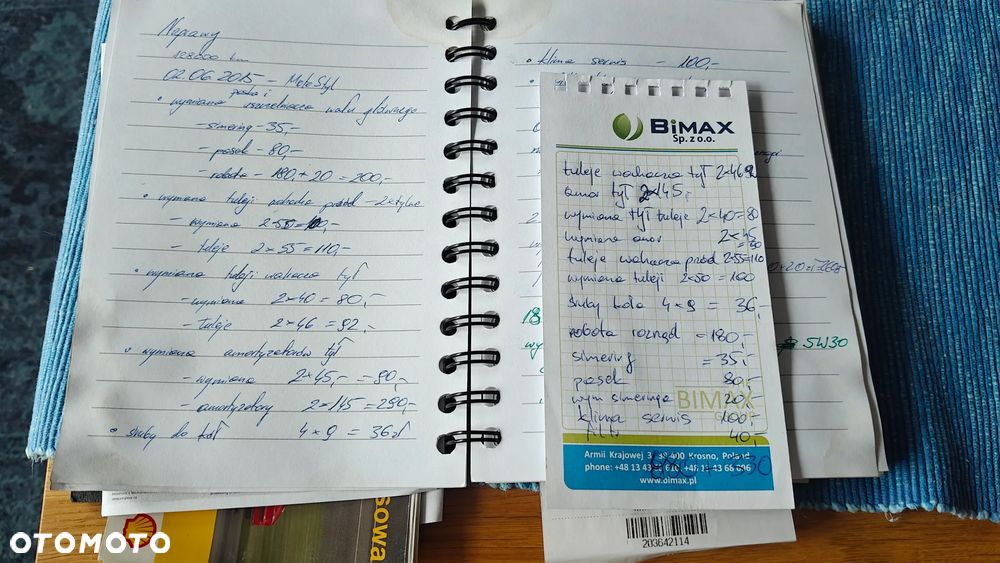 Naprawy
128000 km
02.06.2015 - MotoStyl
paska i
• wymiana uszczelniacza wału głównego
- simering - 35,-
- pasek - 80,-
- robota - 180,- + 20 = 200,-
• wymiana tuleji wahacza przód - 2 x tylne
- wymiana 2 x 50 =
- tuleje 2 x 55 = 110,-
• wymiana tuleji wahacza tył
- wymiana 2 x 40 = 80,-
- tuleje 2 x 46 = 92,-
• wymiana amortyzatorów tył
- wymiana 2 x 45,- = 90,-
- amortyzatory 2 x 145 = 290,-
• śruby do kół 4 x 9 = 36 zł
• klima serwis - 100,-
5W30
BiMAX
Sp. z o.o.
tuleje wahacza tył 2x46
amor tył 2x145,-
wymiana tył tuleje 2x40=80
wymiana amor 2x45
=90
tuleje wahacza przód 2x55=110
wymiana tuleji 2x50 = 100
śruby koła 4 x 9 = 36,-
robota rozrząd = 180,-
simering = 35,-
pasek 80,-
wym simeringa 20,-
BIMAX
klima serwis 100,-
filtr 40,-
Armii Krajowej 3, 38-400 Krosno, Poland
phone: +48 13 43 +48 13 43 68 696
www.bimax.pl
203642114
sowa
OTOMOTO